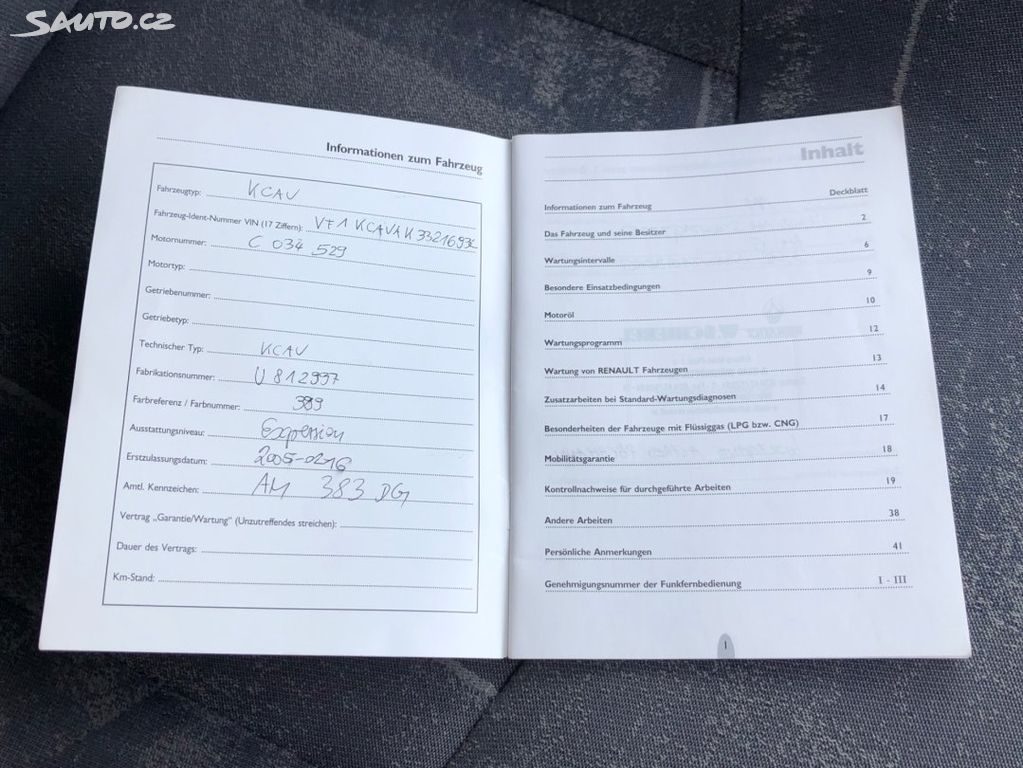 SAUTO.CZ
Informationen zum Fahrzeug
Fahrzeugtyp: KCAV
Fahrzeug-Ident-Nummer VIN (17 Ziffern): VF1KCAVAK33216932
Motornummer: C 034 529
Motortyp:
Getriebenummer:
Getriebetyp:
Technischer Typ: KCAV
Fabrikationsnummer: U812997
Farbreferenz / Farbnummer: 389
Ausstattungsniveau: Expression
Erstzulassungsdatum: 2005-0216
Amtl. Kennzeichen: AM 383 DG
Vertrag „Garantie/Wartung" (Unzutreffendes streichen):
Dauer des Vertrags:
Km-Stand:
Inhalt
Informationen zum Fahrzeug Deckblatt
Das Fahrzeug und seine Besitzer 2
Wartungsintervalle 6
Besondere Einsatzbedingungen 9
Motoröl 10
Wartungsprogramm 12
Wartung von RENAULT Fahrzeugen 13
Zusatzarbeiten bei Standard-Wartungsdiagnosen 14
Besonderheiten der Fahrzeuge mit Flüssiggas (LPG bzw. CNG) 17
Mobilitätsgarantie 18
Kontrollnachweise für durchgeführte Arbeiten 19
Andere Arbeiten 38
Persönliche Anmerkungen 41
Genehmigungsnummer der Funkfernbedienung I - III
1